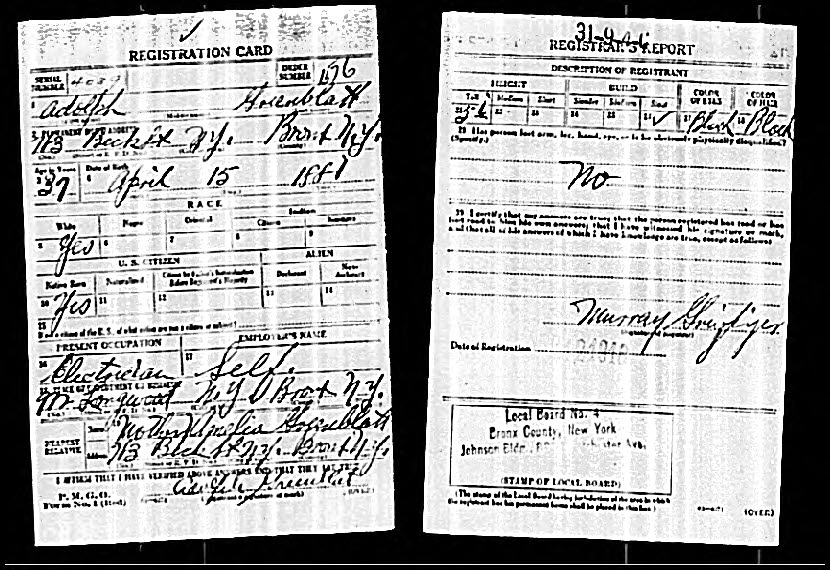 REGISTRATION CARD
SERIAL NUMBER
ORDER NUMBER 176
Adolph Greenblatt
2. PERMANENT HOME ADDRESS
713 Beck St N.Y. Bronx N.Y.
Age in Years Date of Birth
37 April 15 1881
RACE
White Negro Oriental Indian
Citizen
5 Yes 6 7 8 9
U. S. CITIZEN ALIEN
Native Born Naturalized Declarant Non-declarant
10 Yes 11 12 13 14
15
PRESENT OCCUPATION EMPLOYER'S NAME
16 Electrician 17 Self.
Longwood N.Y. Bronx N.Y.
NEAREST RELATIVE
Name Mother Amelia Greenblatt
Address 713 Beck St N.Y. Bronx N.Y.
I AFFIRM THAT I HAVE VERIFIED ABOVE ANSWERS AND THAT THEY ARE TRUE
Adolph Greenblatt
P. M. G. O.
Form No. 1 (Red) (OVER)
31-9-44-C
REGISTRAR'S REPORT
DESCRIPTION OF REGISTRANT
HEIGHT BUILD COLOR OF EYES COLOR OF HAIR
Tall Medium Short Slender Medium Stout
Black Black
29. Has person lost arm, leg, hand, eye, or is he obviously physically disqualified?
(Specify.)
No
30. I certify that my answers are true; that the person registered has read or has
had read to him his own answers; that I have witnessed his signature or mark,
and that all of his answers of which I have knowledge are true, except as follows:
Murray
Date of Registration
Local Board No. 4
Bronx County, New York
Johnson Bldg.,
(STAMP OF LOCAL BOARD)
(The stamp of the Local Board having jurisdiction of the area in which
the registrant has his permanent home shall be placed in this box.)
(OVER)